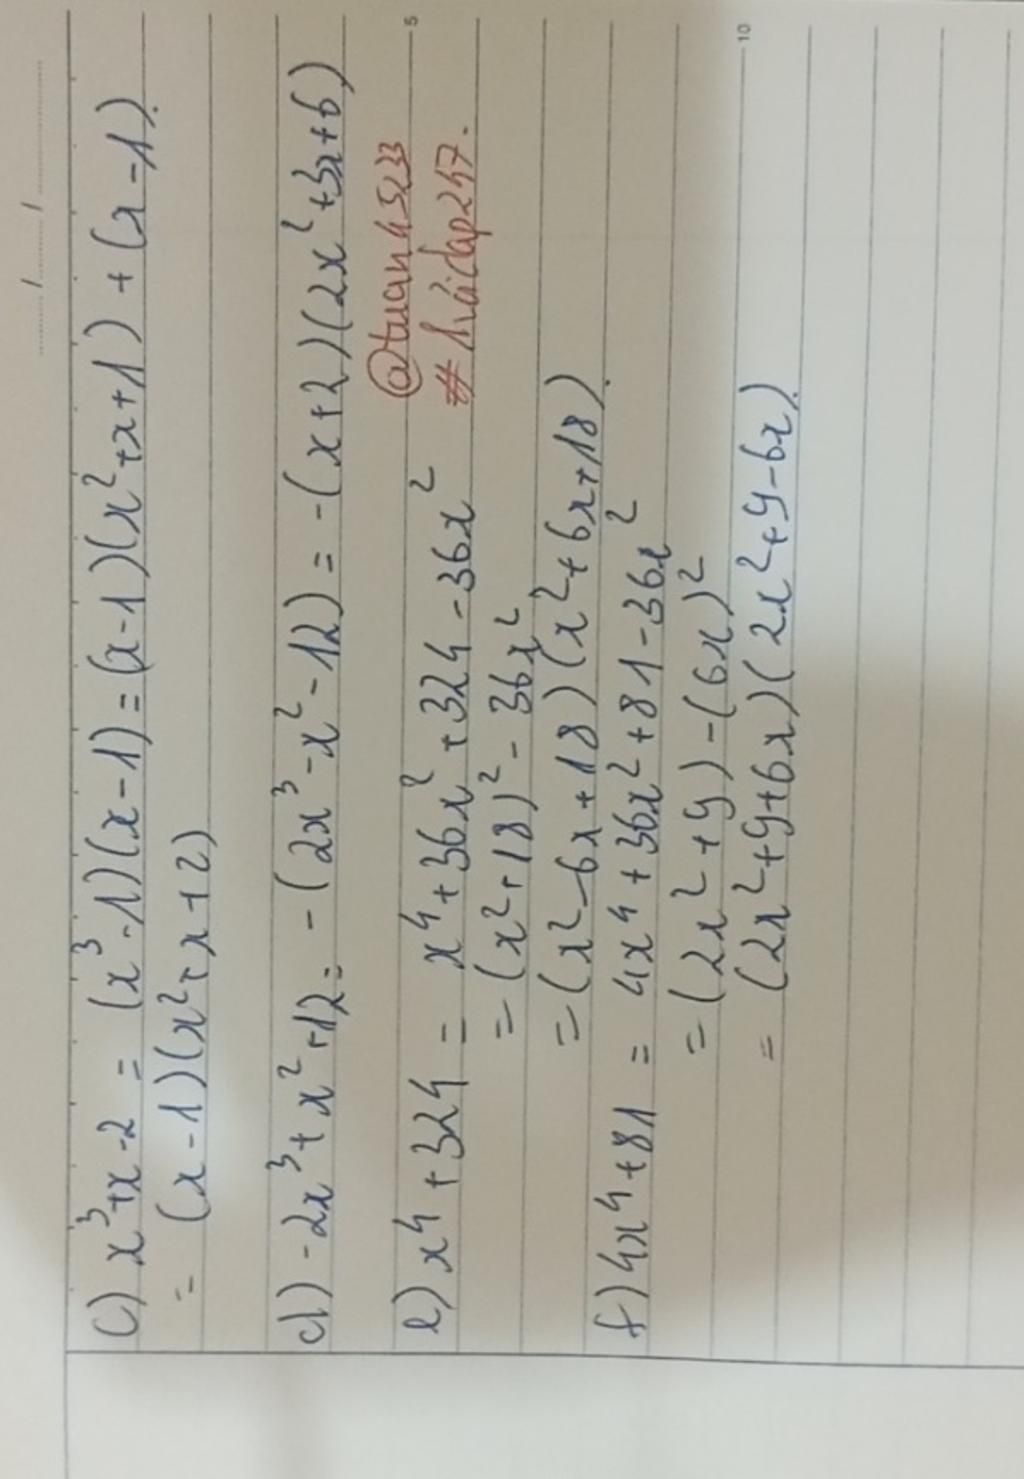 c) x³+x-2 = (x³-1)(x-1) = (x-1)(x²+x+1) + (x-1).
= (x-1)(x²+x+2)
d) -2x³+x²+12= -(2x³-x²-12) = -(x+2)(2x²+3x+6)
@tuan45233
#hỏidap247.
e) x⁴+324 = x⁴+36x²+324-36x²
= (x²+18)²-36x²
= (x²-6x+18)(x²+6x+18).
f) 4x⁴+81 = 4x⁴+36x²+81-36x²
= (2x²+9)-(6x)²
= (2x²+9+6x)(2x²+9-6x).
5
10